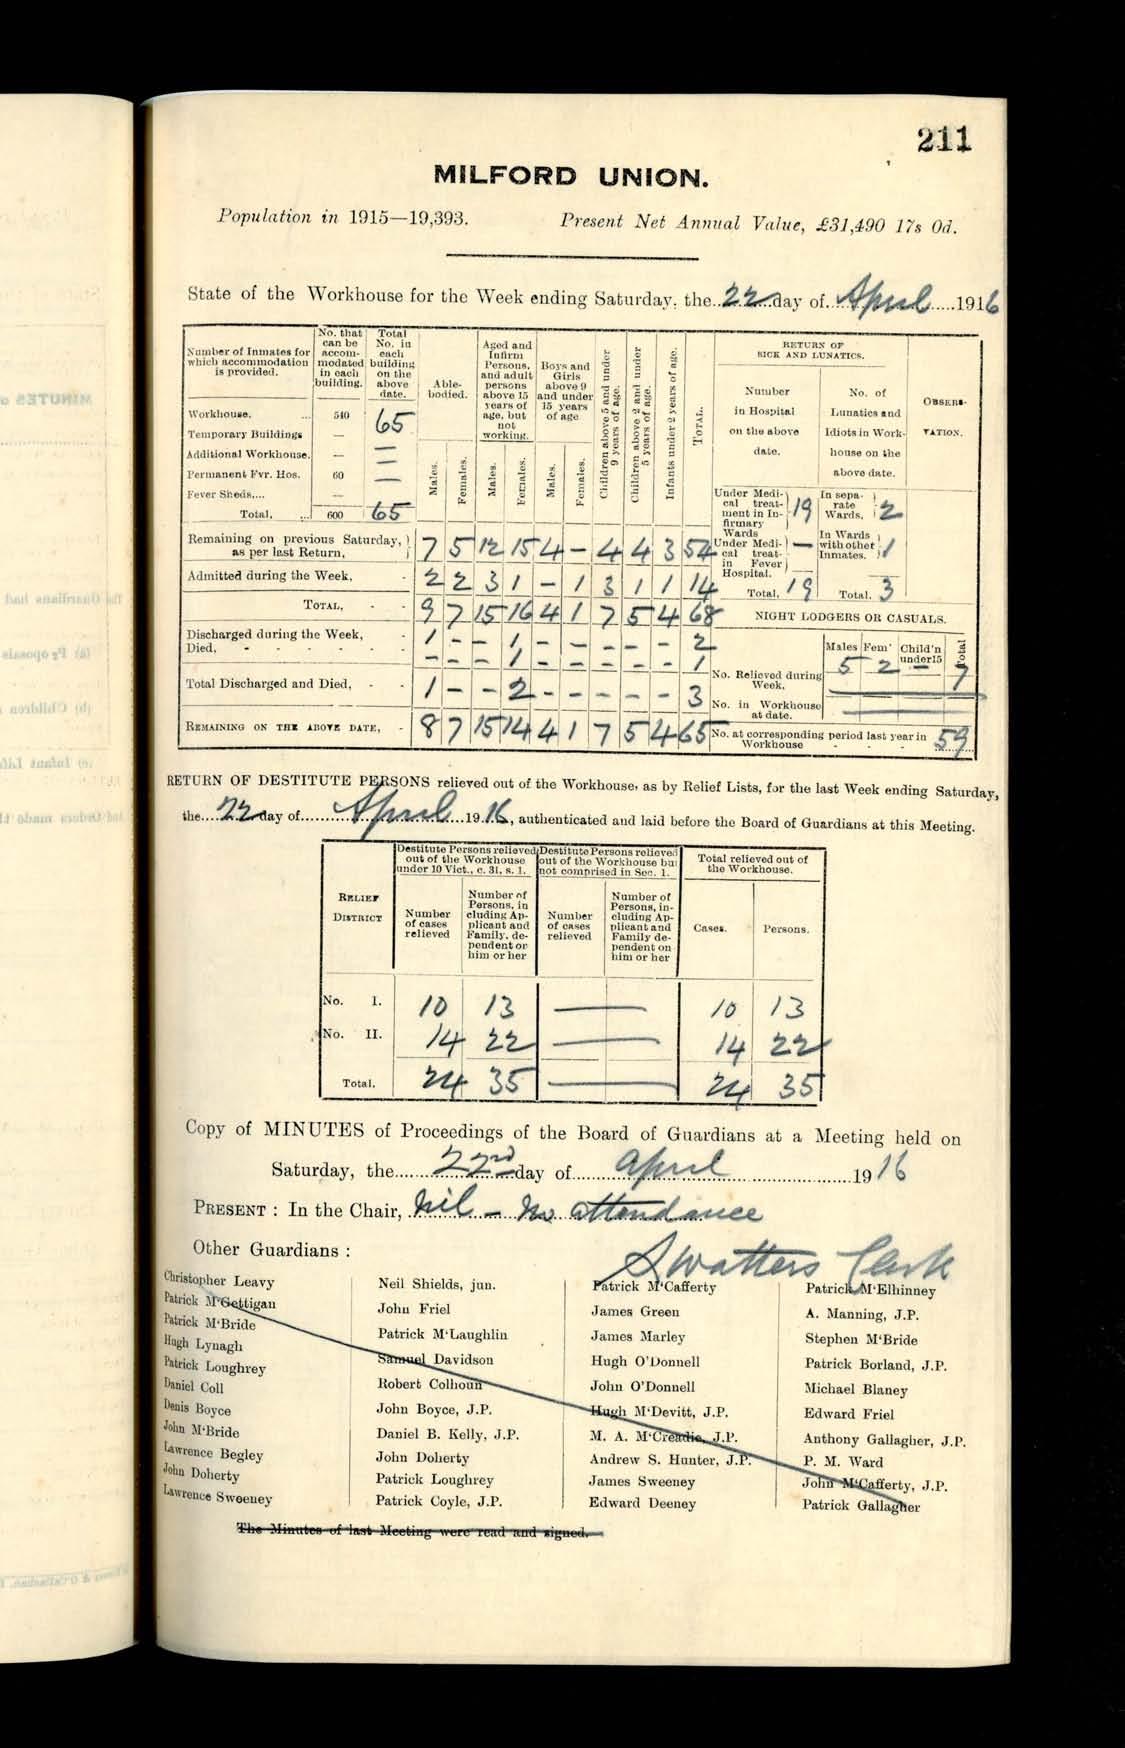 211
MILFORD UNION.
Population in 1915—19,393. Present Net Annual Value, £31,490 17s 0d.
State of the Workhouse for the Week ending Saturday, the 22 day of April 1916
Number of Inmates for which accommodation is provided. No. that can be accommodated in each building. Total No. in each building on the above date.
Workhouse. ... 540 65
Temporary Buildings — —
Additional Workhouse. — —
Permanent Fvr. Hos. 60 —
Fever Sheds,... —
Total, ... 600 65
Able-bodied. Males. Females.
Aged and Infirm Persons, and adult persons above 15 years of age, but not working. Males. Females.
Boys and Girls above 9 and under 15 years of age Males. Females.
Children above 5 and under 9 years of age.
Children above 2 and under 5 years of age.
Infants under 2 years of age.
TOTAL.
Remaining on previous Saturday, as per last Return, 7 5 12 15 4 – 4 4 3 54
Admitted during the Week, - 2 2 3 1 – 1 3 1 1 14
TOTAL, - - 9 7 15 16 4 1 7 5 4 68
Discharged during the Week, - 1 – – 1 – – – – – 2
Died, - - - - - – – – 1 – – – – – 1
Total Discharged and Died, - - 1 – – 2 – – – – – 3
REMAINING ON THE ABOVE DATE, - 8 7 15 14 4 1 7 5 4 65
RETURN OF SICK AND LUNATICS.
Number in Hospital on the above date.
No. of Lunatics and Idiots in Workhouse on the above date.
OBSERVATION.
Under Medical treatment in Infirmary Wards 19
Under Medical treatment in Fever Hospital. —
Total, 19
In separate Wards, 2
In Wards with other Inmates. 1
Total. 3
NIGHT LODGERS OR CASUALS.
Males Fem' Child'n under 15 Total
No. Relieved during Week, 5 2 – 7
No. in Workhouse at date. —
No. at corresponding period last year in Workhouse - - 59
RETURN OF DESTITUTE PERSONS relieved out of the Workhouse, as by Relief Lists, for the last Week ending Saturday,
the 22 day of April 1916, authenticated and laid before the Board of Guardians at this Meeting.
RELIEF DISTRICT
Destitute Persons relieved out of the Workhouse under 10 Vict., c. 31, s. 1.
Destitute Persons relieved out of the Workhouse but not comprised in Sec. 1.
Total relieved out of the Workhouse.
Number of cases relieved
Number of Persons, including Applicant and Family, dependent on him or her
Number of cases relieved
Number of Persons, including Applicant and Family dependent on him or her
Cases. Persons.
No. I. 10 13 — 10 13
No. II. 14 22 — 14 22
Total. 24 35 — 24 35
Copy of MINUTES of Proceedings of the Board of Guardians at a Meeting held on
Saturday, the 22nd day of April 1916
PRESENT: In the Chair, Nil – No attendance
S Watters Clerk
Other Guardians:
Christopher Leavy
Patrick M'Gettigan
Patrick M'Bride
Hugh Lynagh
Patrick Loughrey
Daniel Coll
Denis Boyce
John M'Bride
Lawrence Begley
John Doherty
Lawrence Sweeney
Neil Shields, jun.
John Friel
Patrick M'Laughlin
Samuel Davidson
Robert Colhoun
John Boyce, J.P.
Daniel B. Kelly, J.P.
John Doherty
Patrick Loughrey
Patrick Coyle, J.P.
Patrick M'Cafferty
James Green
James Marley
Hugh O'Donnell
John O'Donnell
Hugh M'Devitt, J.P.
M. A. M'Creadie, J.P.
Andrew S. Hunter, J.P.
James Sweeney
Edward Deeney
Patrick M'Elhinney
A. Manning, J.P.
Stephen M'Bride
Patrick Borland, J.P.
Michael Blaney
Edward Friel
Anthony Gallagher, J.P.
P. M. Ward
John M'Cafferty, J.P.
Patrick Gallagher
The Minutes of last Meeting were read and signed.